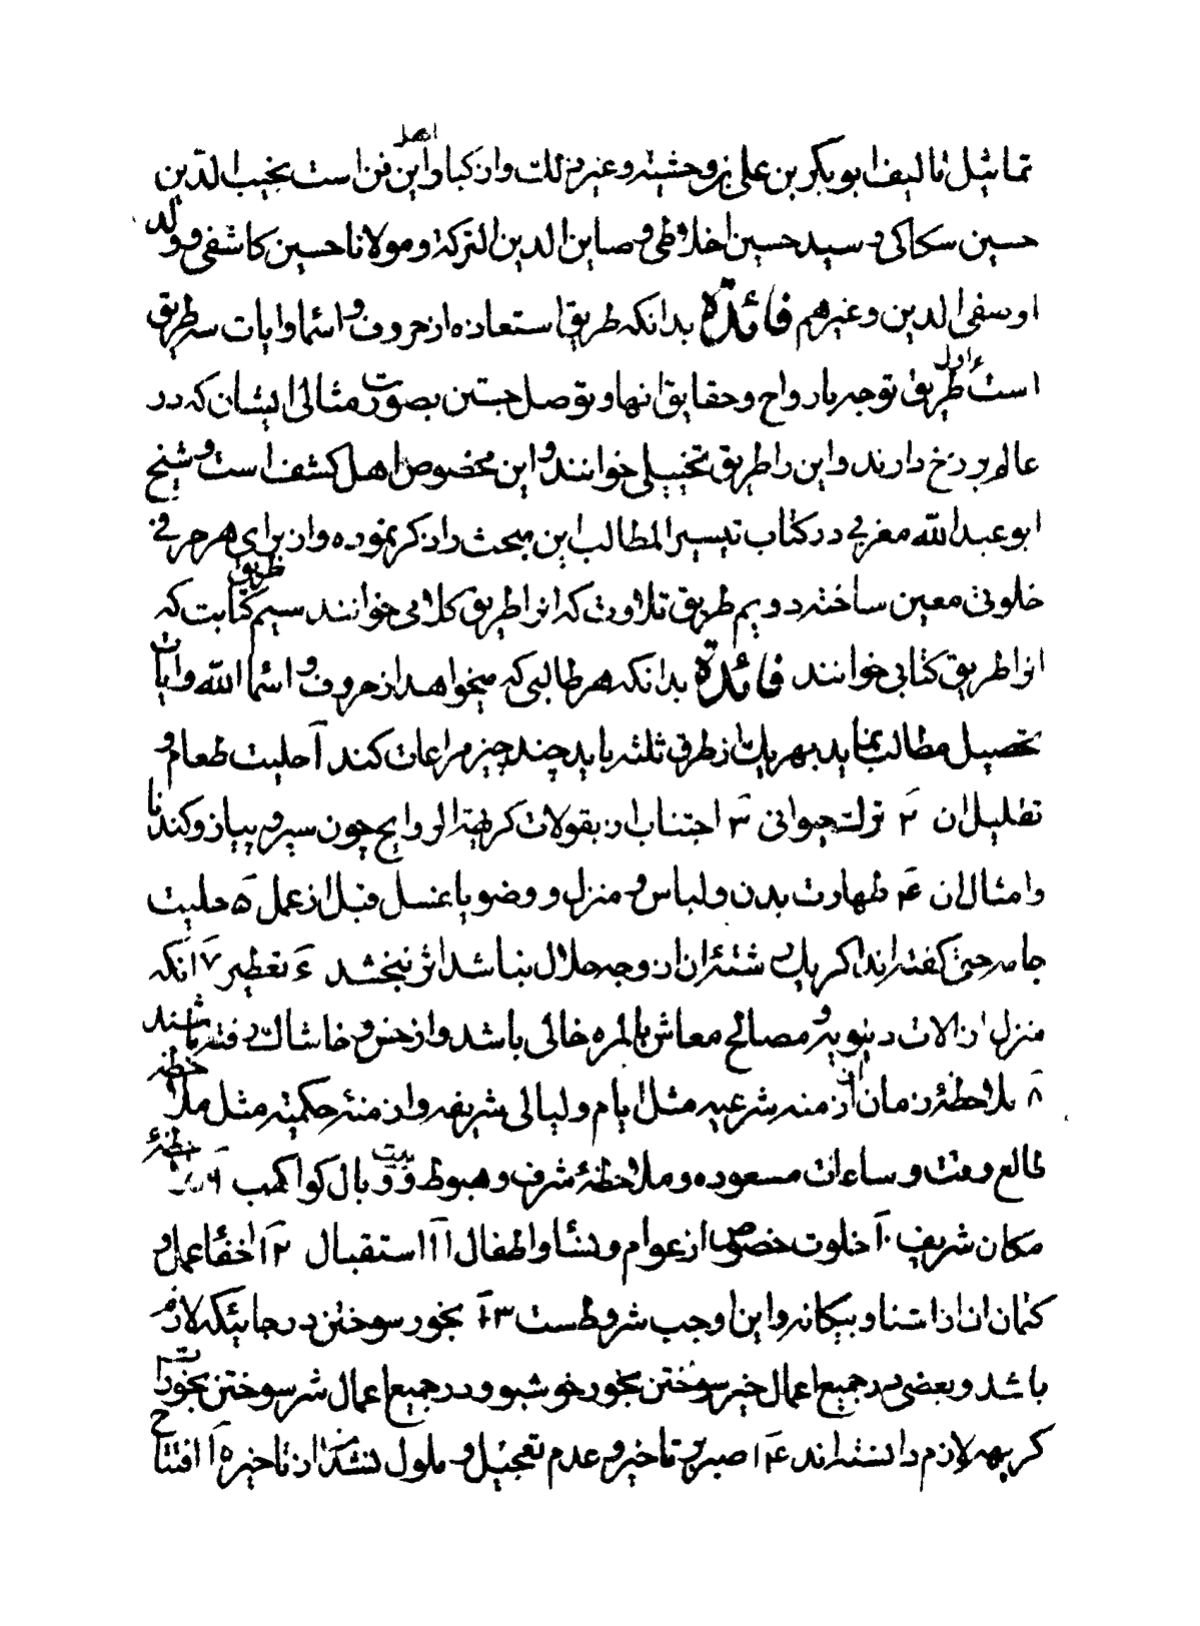 تماثیل تالیف ابو بکر بن علی بن وحشیه و غیر ذلك و از کبار اهل این فن است نجیب الدین
حسین سکاکی و سید حسین اخلاطی و صاین الدین الترکه و مولانا حسین کاشفی و ولد
او سفی الدین و غیرهم فائدة بدانکه طریق استعاذه از حروف و اسما و ایات سه طریق
است اول طریق توجه بارواح و حقایق انها و توصل جستن بصورت مثالی ایشان که در
عالم برزخ دارند و این را طریق تخییلی خوانند و این مخصوص اهل کشف است و شیخ
ابو عبد الله مغربی در کتاب تیسیر المطالب این مبحث را ذکر نموده و از برای هر حرفی
خلوتی معین ساخته دویم طریق تلاوت که انرا طریق کلامی خوانند سیم طریق کتابت که
انرا طریق کتابی خوانند فائدة بدانکه هر طالبی که میخواهد از حروف و اسما الله و ایات
تحصیل مطالب نماید بهر یك از طرق ثلثه باید چند چیز مراعات کند ۱ حلیت طعام و
تقلیل ان ۲ ترك حیوانی ۳ اجتناب از بقولات کریهة الروایح چون سیر و پیاز و کندنا
و امثال ان ۴ طهارت بدن و لباس و منزل و وضو یا غسل قبل از عمل ۵ حلیت
جامه حتی کفته اند اکر یك رشته ان از وجه حلال نباشد اثر نبخشد ۶ تعطیر ۷ انکه
منزل از الات دنیویه و مصالح معاش بالمره خالی باشد و از خس و خاشاك رفته باشند
۸ ملاحظهٔ زمان از ازمنه شرعیه مثل ایام و لیالی شریفه و ازمنهٔ حکمیه مثل ملاحظه
طالع وقت و ساعات مسعوده و ملاحظهٔ شرف و هبوط و بیت و وبال کواکب ۹ ملاحظهٔ
مکان شریف ۱۰ خلوت خصوص از عوام و نسا و اطفال ۱۱ استقبال ۱۲ اخفاء عمل و
کتمان ان از اشنا و بیکانه و این اوجب شروط است ۱۳ بخور سوختن در جائیکه لازم
باشد و بعضی در جمیع اعمال خیر سوختن بخور خوشبو و در جمیع اعمال شر سوختن بخورات
کریهه لازم دانسته اند ۱۴ صبر و تاخیر و عدم تعجیل و ملول نشدن از تاخیر ۱۵ افتتاح